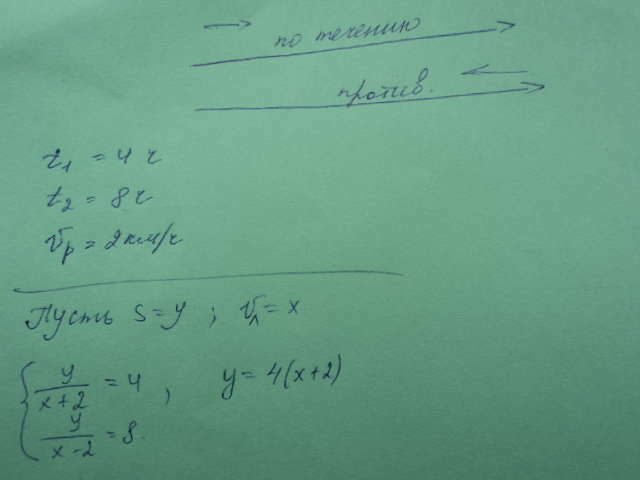 по течению
против.
t₁ = 4 ч
t₂ = 8 ч
Vр = 2 км/ч
Пусть S = y ; Vл = x
y/(x+2) = 4 , y = 4(x+2)
y/(x-2) = 8.